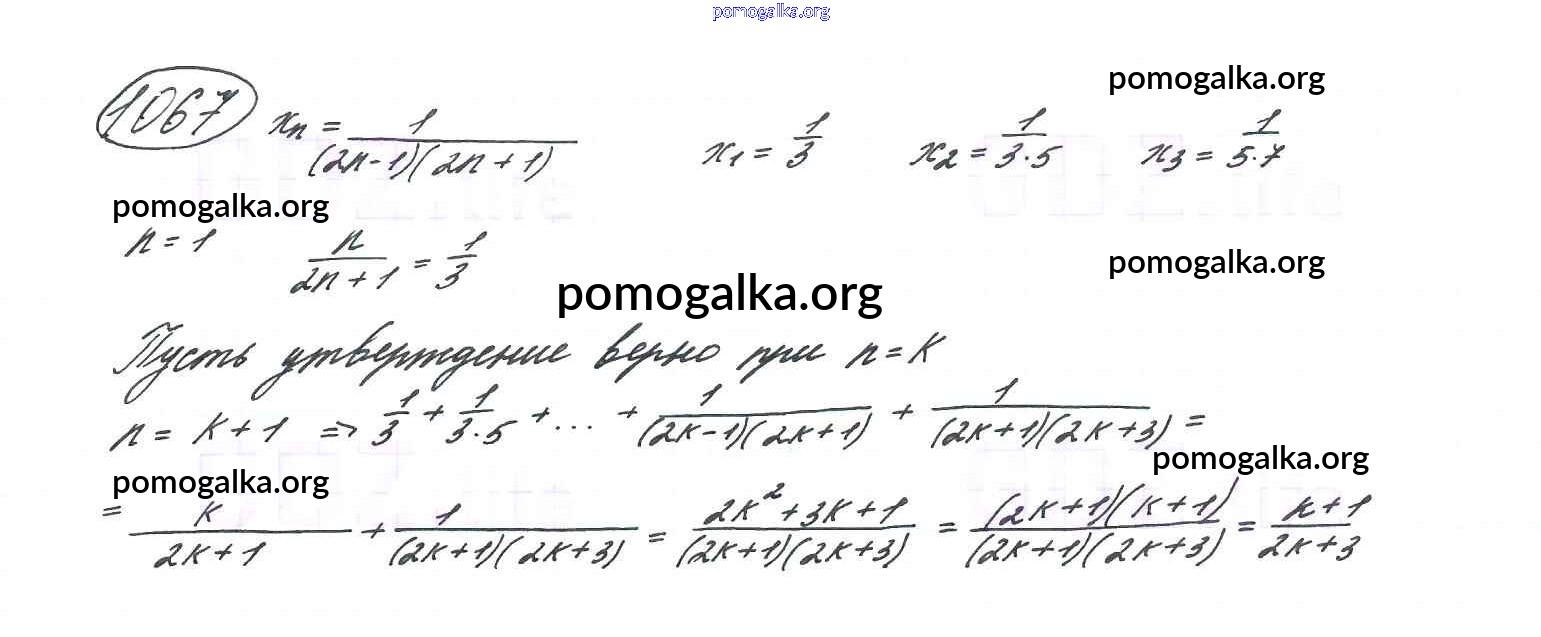 pomogalka.org
pomogalka.org
1067 xₙ = 1/((2n-1)(2n+1)) x₁ = 1/3 x₂ = 1/(3·5) x₃ = 1/(5·7)
pomogalka.org
n = 1 n/(2n+1) = 1/3
pomogalka.org
pomogalka.org
Пусть утверждение верно при n = k
n = k+1 => 1/3 + 1/(3·5) + ... + 1/((2k-1)(2k+1)) + 1/((2k+1)(2k+3)) =
pomogalka.org
pomogalka.org
= k/(2k+1) + 1/((2k+1)(2k+3)) = (2k²+3k+1)/((2k+1)(2k+3)) = ((2k+1)(k+1))/((2k+1)(2k+3)) = (k+1)/(2k+3)